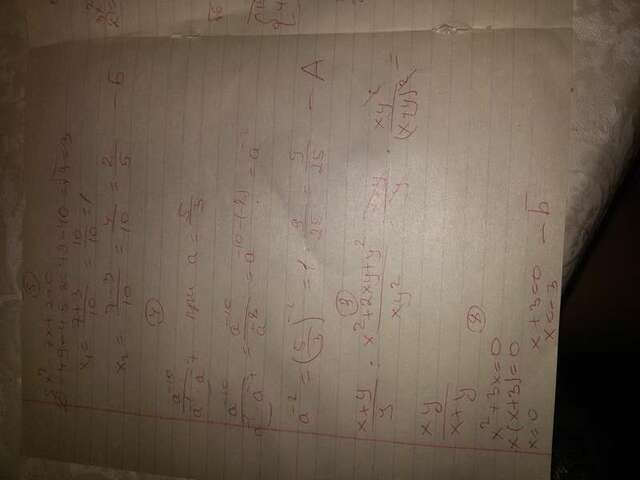 5
5x² - 7x + 2 = 0
D = 49 - 4·5·2 = 49 - 40 = √9 = 3
x₁ = (7+3)/10 = 10/10 = 1
x₂ = (7-3)/10 = 4/10 = 2/5 - б
a⁻¹⁰/(a⁻¹ · a⁻⁷) при a = 5/3
a⁻¹⁰/(a⁻¹ · a⁻⁷) = a⁻¹⁰/a⁻⁸ = a⁻¹⁰⁻⁽⁻⁸⁾ = a⁻²
a⁻² = (5/3)⁻² = 1 9/25 = 9/25 - А
(x+y)/y : (x²+2xy+y²)/xy² (x+y)/y · xy²/(x+y)² =
xy/(x+y)
x² + 3x = 0
x(x+3) = 0
x = 0 x+3 = 0
x = -3 - б